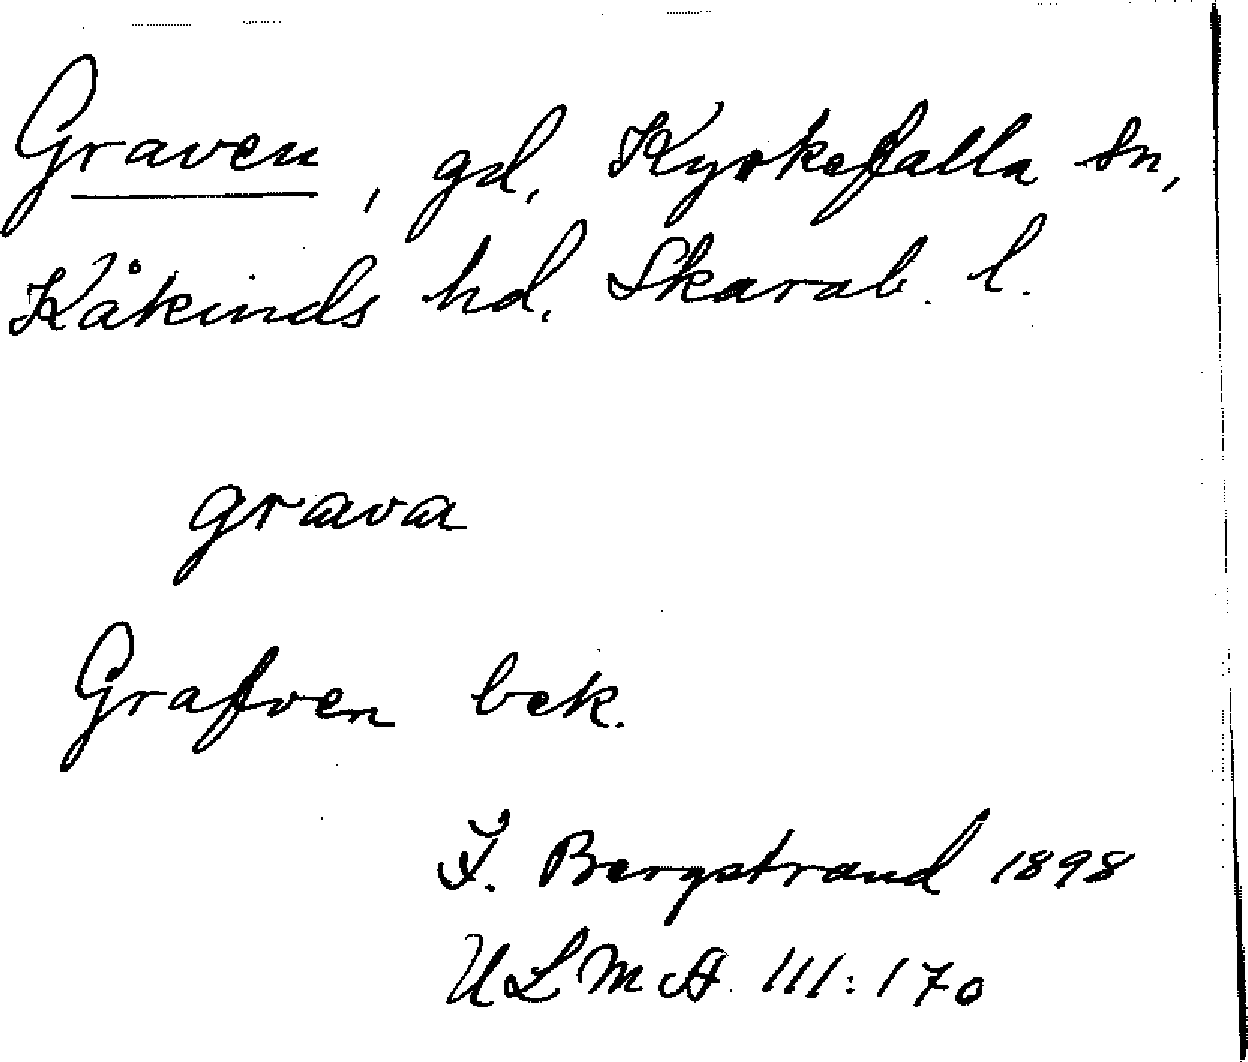 Graven, gd, Kyrkefalla sn,
Kåkinds hd, Skarab. l.
grava
Grafven bek.
J. Bergstrand 1898
ULMA III:170